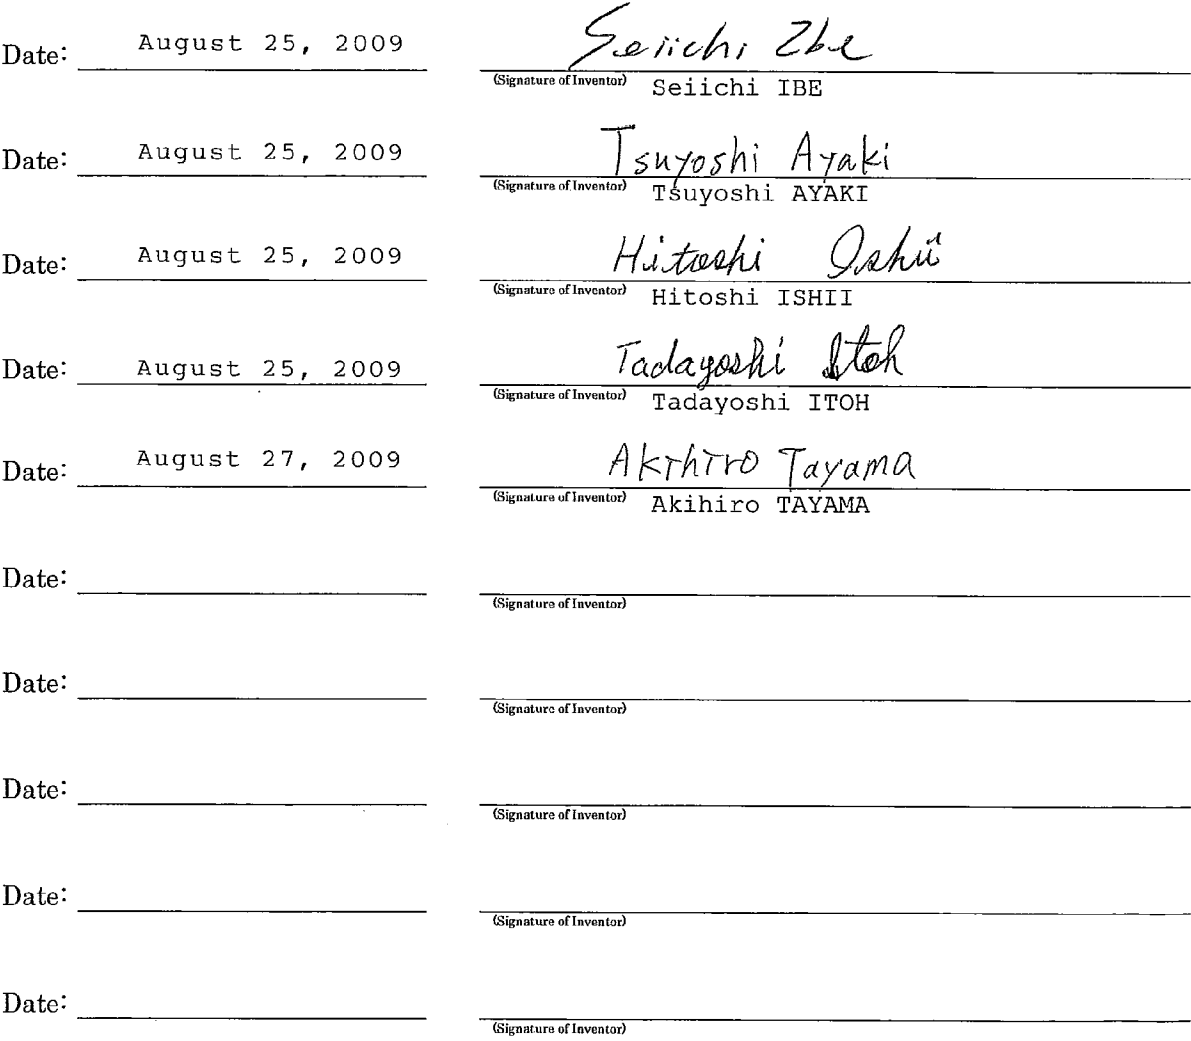 Date: August 25, 2009 Seiichi Ibe
(Signature of Inventor) Seiichi IBE
Date: August 25, 2009 Tsuyoshi Ayaki
(Signature of Inventor) Tsuyoshi AYAKI
Date: August 25, 2009 Hitoshi Ishii
(Signature of Inventor) Hitoshi ISHII
Date: August 25, 2009 Tadayoshi Itoh
(Signature of Inventor) Tadayoshi ITOH
Date: August 27, 2009 Akihiro Tayama
(Signature of Inventor) Akihiro TAYAMA
Date:
(Signature of Inventor)
Date:
(Signature of Inventor)
Date:
(Signature of Inventor)
Date:
(Signature of Inventor)
Date:
(Signature of Inventor)